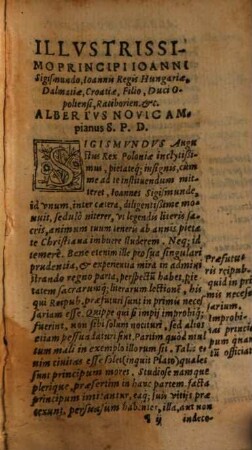 ILLVSTRISSI-
MO PRINCIPI IOANNI
Sigismundo, Ioannis Regis Hungariæ,
Dalmatiæ, Croatiæ, Filio, Duci O-
poliensi, Ratiborien. &c.
ALBERTVS NOVICAM
pianus S. P. D.
SIGISMVNDVS Augu
stus Rex Poloniæ inclytissi-
mus, pietateq; insignis, cum
me ad te instituendum mit-
teret, Ioannes Sigismunde,
id vnum, inter cætera, diligentissime mo-
nuit, sedulò niterer, vt legendis literis sa-
cris, animum tuum ienerū ab annis pieta
te Christiana imbuere studerem. Neq; id
temerè. Bene etenim ille pro sua singulari
prudentia, & experientia mira in admini
strando regno parta, perspectū habet, pie-
tatem sacrarumq; literarum lectionē, his
qui Reipub. præfuturi sunt in primis neces
sariam esse. Quippe qui si impij improbiq;
fuerint, non sibi solum nocituri, sed alios
etiam pessundaturi sint. Partim quòd mul
tum mali in exemplo illorum sit. Talis e-
nim ciuitas esse solet (inquit Plato) quales
sunt principum mores. Studiose namque
plerique, præsertim in hanc partem, facta
principum imitantur, eaq; suis vitijs præ
texunt, persuasum habentes, illa, aut non
ij indeco-
Præfutur
is reipub.
quid in pri
mis neces-
sarium.
Improbi-
tas princi
pum quan
tū officiat